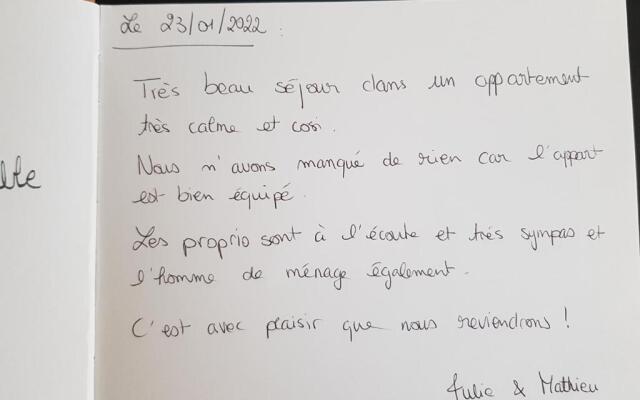 lte
Le 23/01/2022 :
Très beau séjour dans un appartement
très calme et cosi.
Nous n'avons manqué de rien car l'appart
est bien équipé.
Les proprio sont à l'écoute et très sympas et
l'homme de ménage également.
C'est avec plaisir que nous reviendrons !
Julie & Mathieu